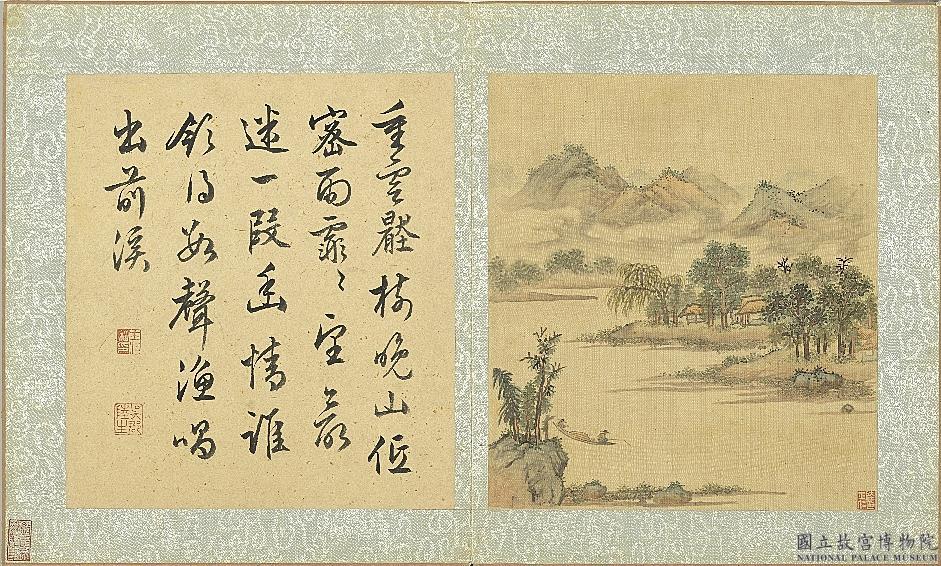 重雲壓樹晚山低
密雨霏〻望
迷一段幽情誰
領得數聲漁唱
出前溪
國立故宮博物院
NATIONAL PALACE MUSEUM